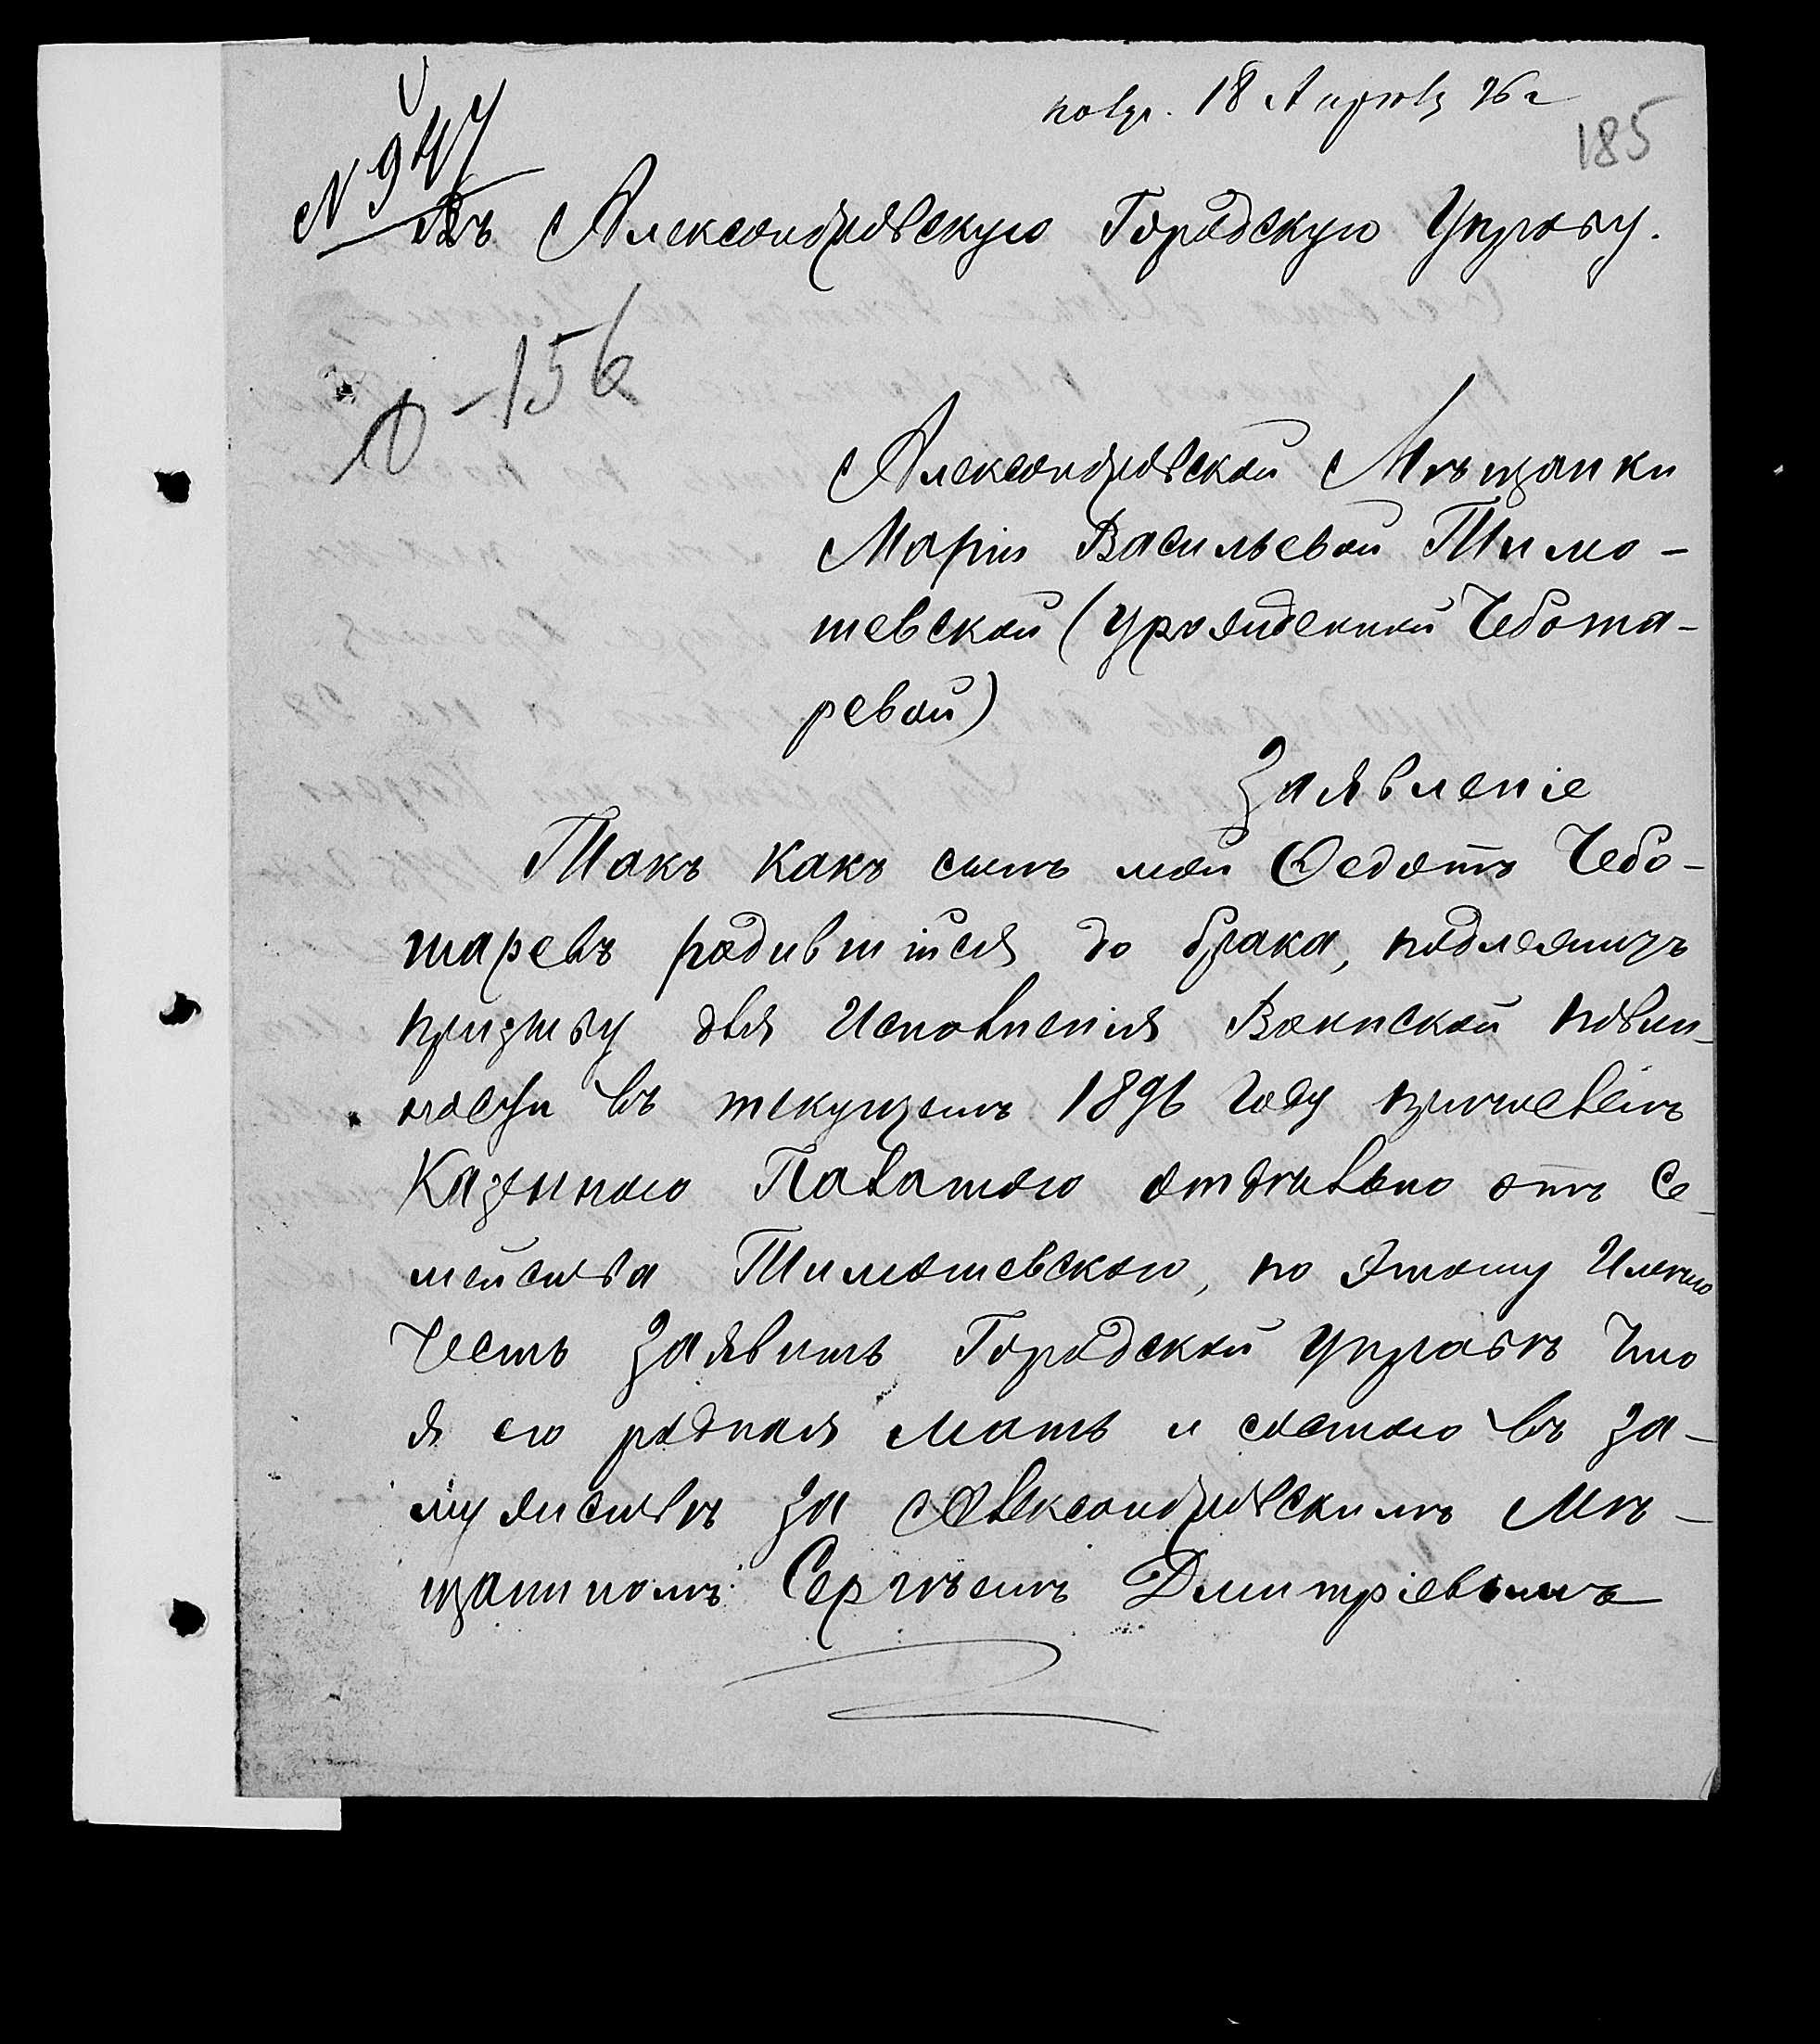 пол. 18 Апрѣля 96 г
185
N 947
Въ Александровскую Городскую Управу.
156
Александровской Мѣщанки
Маріи Васильевой Тимо-
шевской (урожденной Чебота-
ревой)
Заявленіе
Такъ какъ сынъ мой Федотъ Чебо-
таревъ родившійся до брака, подлежитъ
призыву для Исполненія Воинской повин-
ности въ текущемъ 1896 году причисленъ
Казенною Палатою отдѣльно отъ Се-
мейства Тимошевскаго, по Этому Имѣю
Честь Заявить Городской Управѣ Что
я его родная Мать и состою въ За-
мужествѣ за Александровскимъ Мѣ-
щаниномъ Сергѣемъ Дмитріевымъ